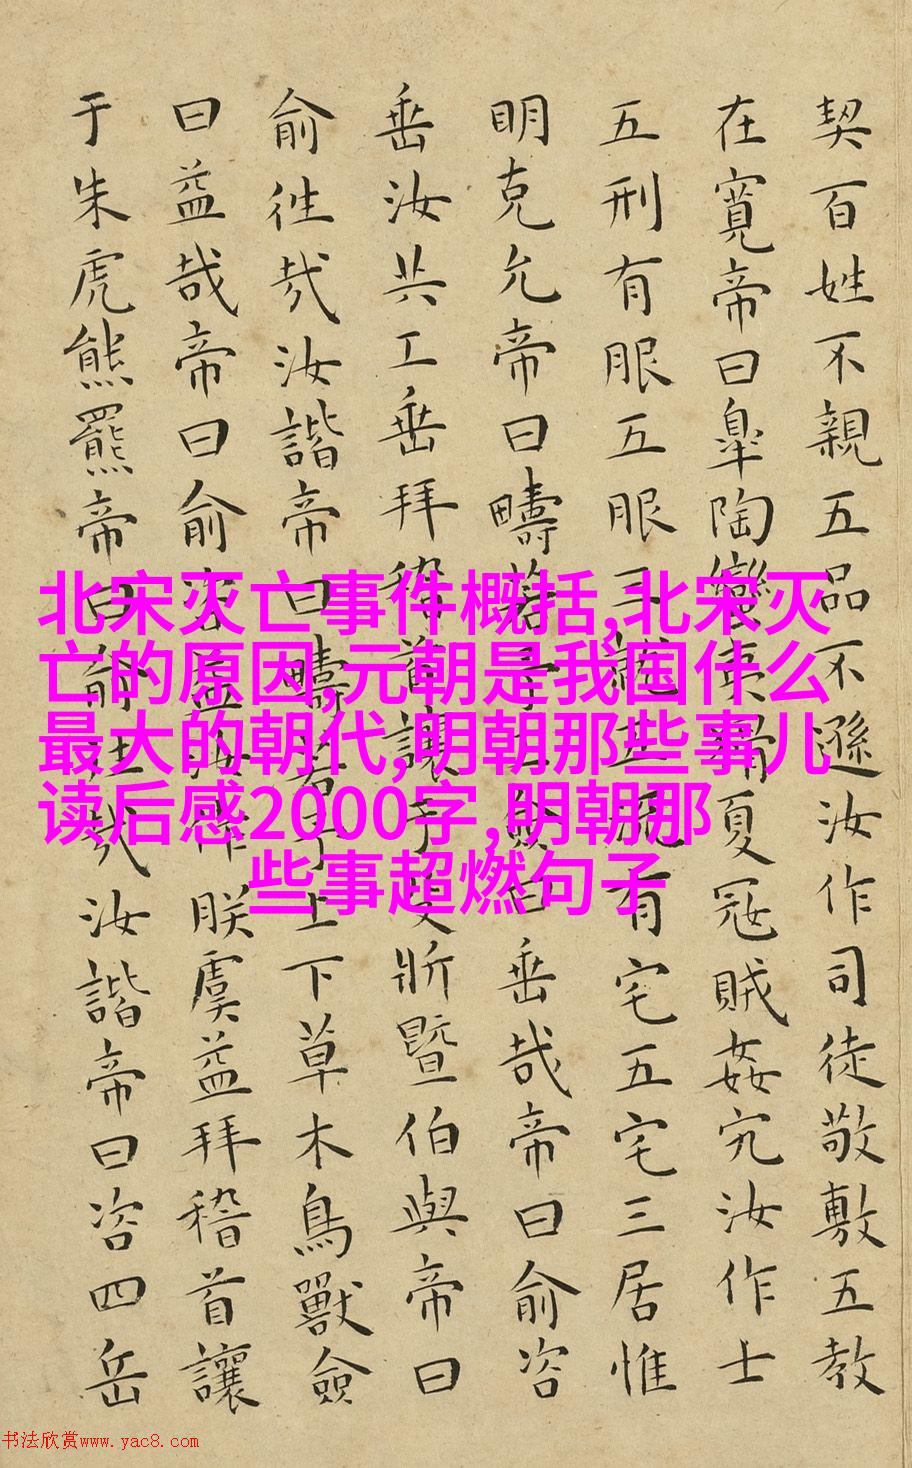 契百姓不親五品不遜汝作司徒敬敷五教
在寬帝曰皐陶蠻夷猾夏冦賊姦宄汝作士
五刑有服五服三就五流有宅五宅三居惟
明克允帝曰疇若予工僉曰垂哉帝曰俞咨
垂汝共工垂拜稽首讓于殳斨暨伯與帝曰
俞徃哉汝諧帝曰疇若予上下草木鳥獸僉
曰益哉帝曰俞咨益汝作朕虞益拜稽首讓
于朱虎熊羆帝曰俞徃哉汝諧帝曰咨四岳
北宋灭亡事件概括,北宋灭
亡的原因,元朝是我国什么
最大的朝代,明朝那些事儿
读后感2000字,明朝那
些事超燃句子
书法欣赏www.yac8.com